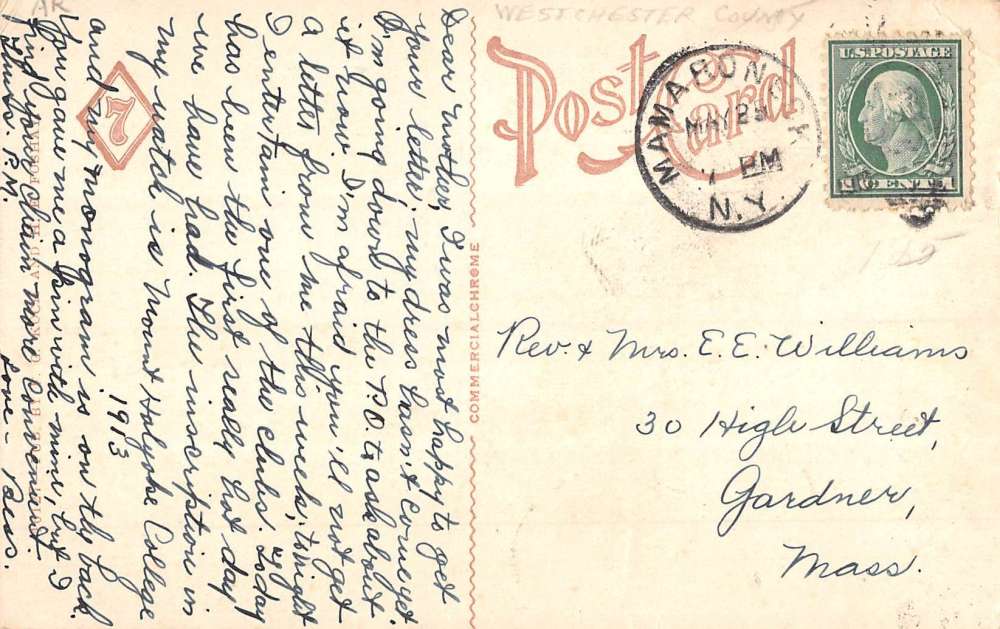 AR
WESTCHESTER COUNTY
Post Card
MAMARONECK
MAY 29
7 PM
N.Y.
U.S. POSTAGE
1 CENT 1
125
Rev. & Mrs. E. E. Williams
30 High Street,
Gardner,
Mass.
COMMERCIALCHROME
7
Dear Mother, I was most happy to get
your letter; my dress hasn't come yet.
I'm going down to the P.O. to ask about
it now. I'm afraid you'll not get
a letter from me this week; tonight
I entertain one of the clubs. Today
has been the first really hot day
we have had. The inscription in
my watch is Mount Holyoke College
1913
and my monogram is on the back.
You gave me a pin with mine, but I
find your chain more convenient
Thurs. P.M.
Love – Bess.